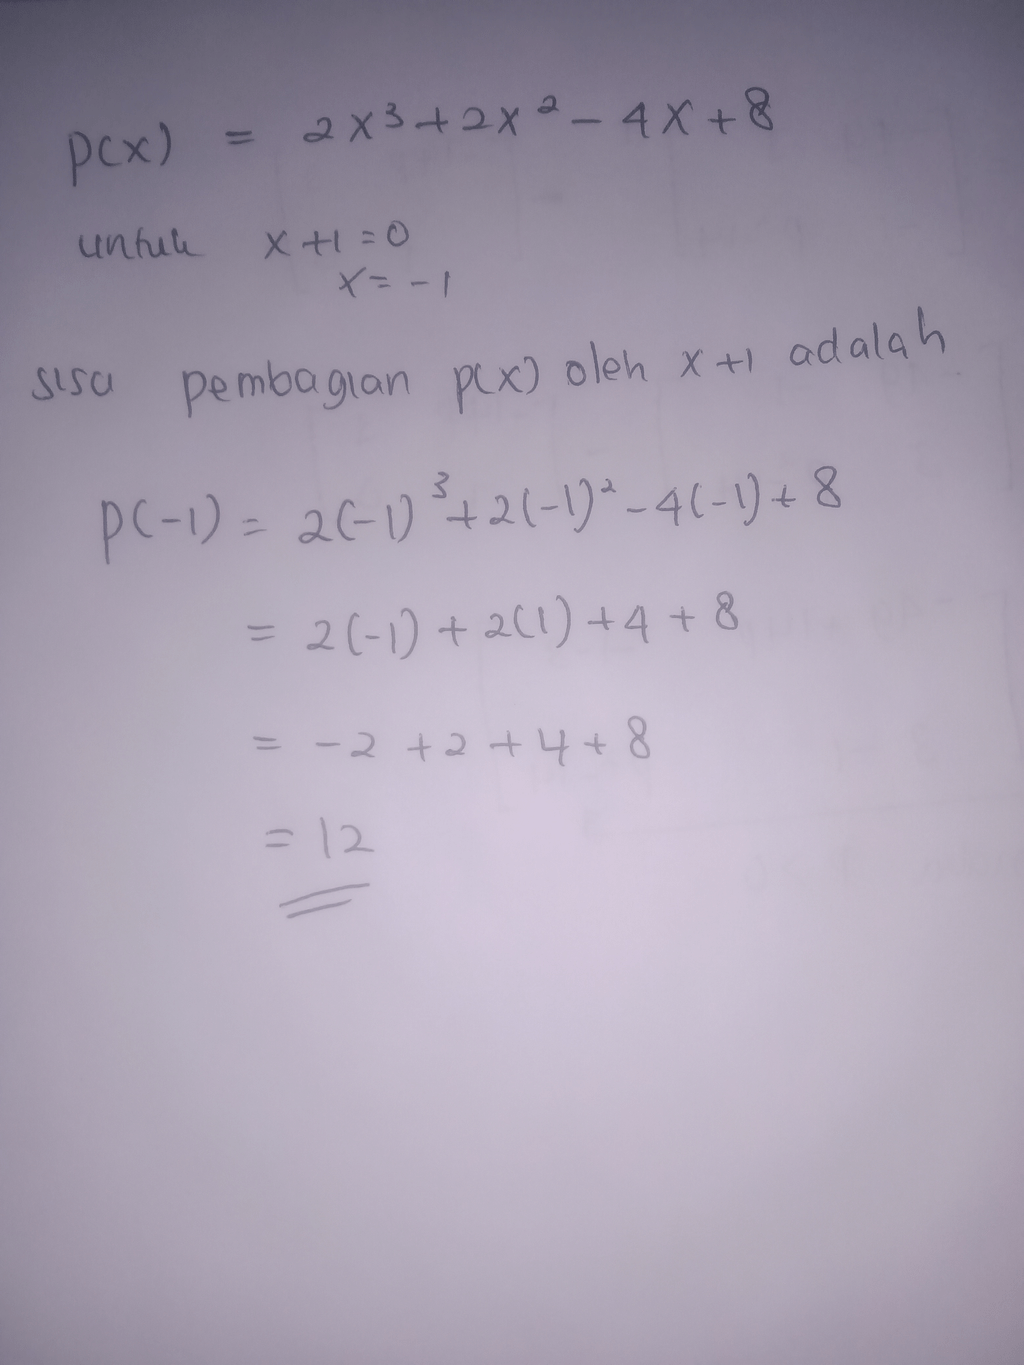 p(x) = 2x³ + 2x² - 4x + 8
untuk x + 1 = 0
x = -1
sisa pembagian p(x) oleh x + 1 adalah
p(-1) = 2(-1)³ + 2(-1)² - 4(-1) + 8
= 2(-1) + 2(1) + 4 + 8
= -2 + 2 + 4 + 8
= 12